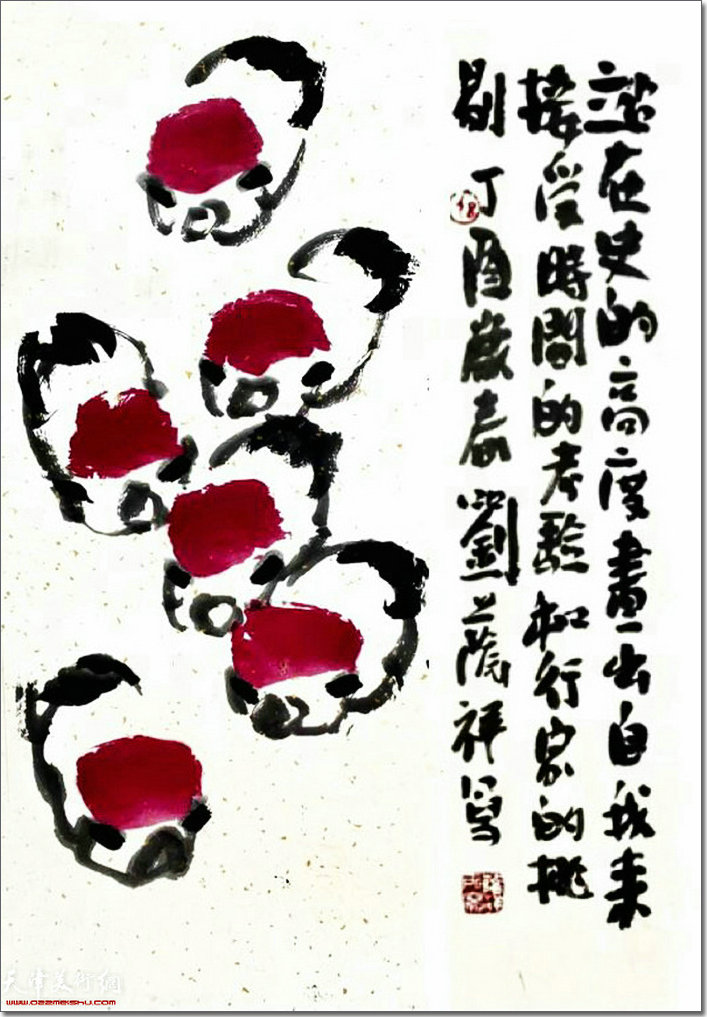 站在史的高度畫出自我来
接受時間的考驗和行家的挑
剔 丁酉歲春 劉蔭祥寫
天津美術网
www.022meishu.com